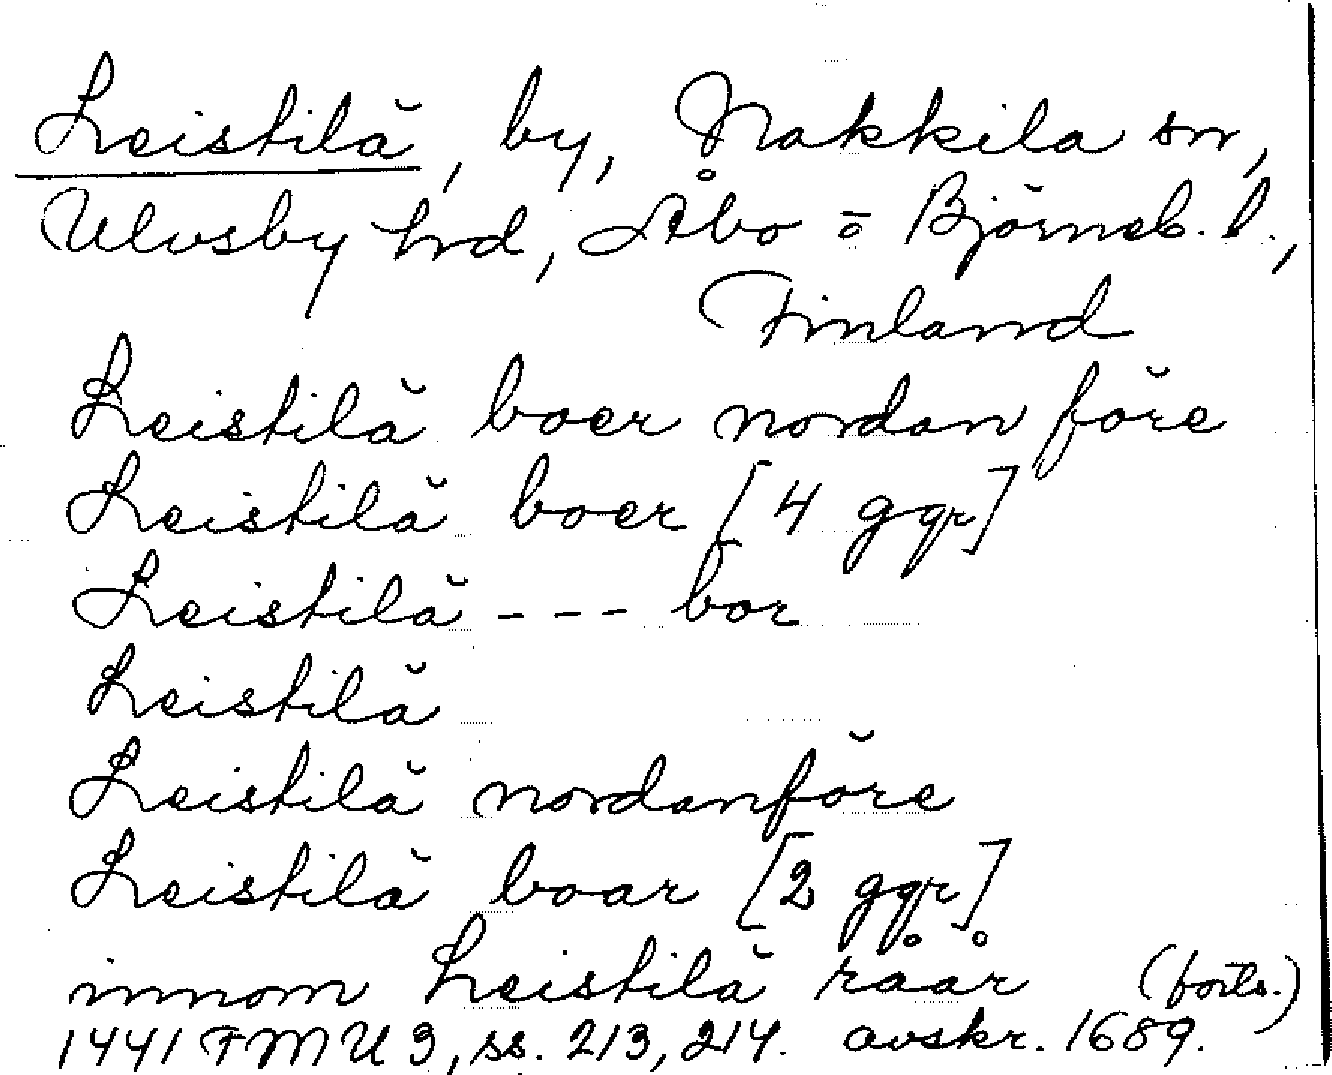 Leistilä, by, Nakkila sn,
Ulvsby hrd, Åbo o Björneb. l.,
Finland
Leistilä boer nordan före
Leistilä boer [4 ggr]
Leistilä - - - bor
Leistilä
Leistilä nordanföre
Leistilä boar [2 ggr]
innom Leistilä råår (forts.)
1441 FMU 3, ss. 213, 214. avskr. 1689.